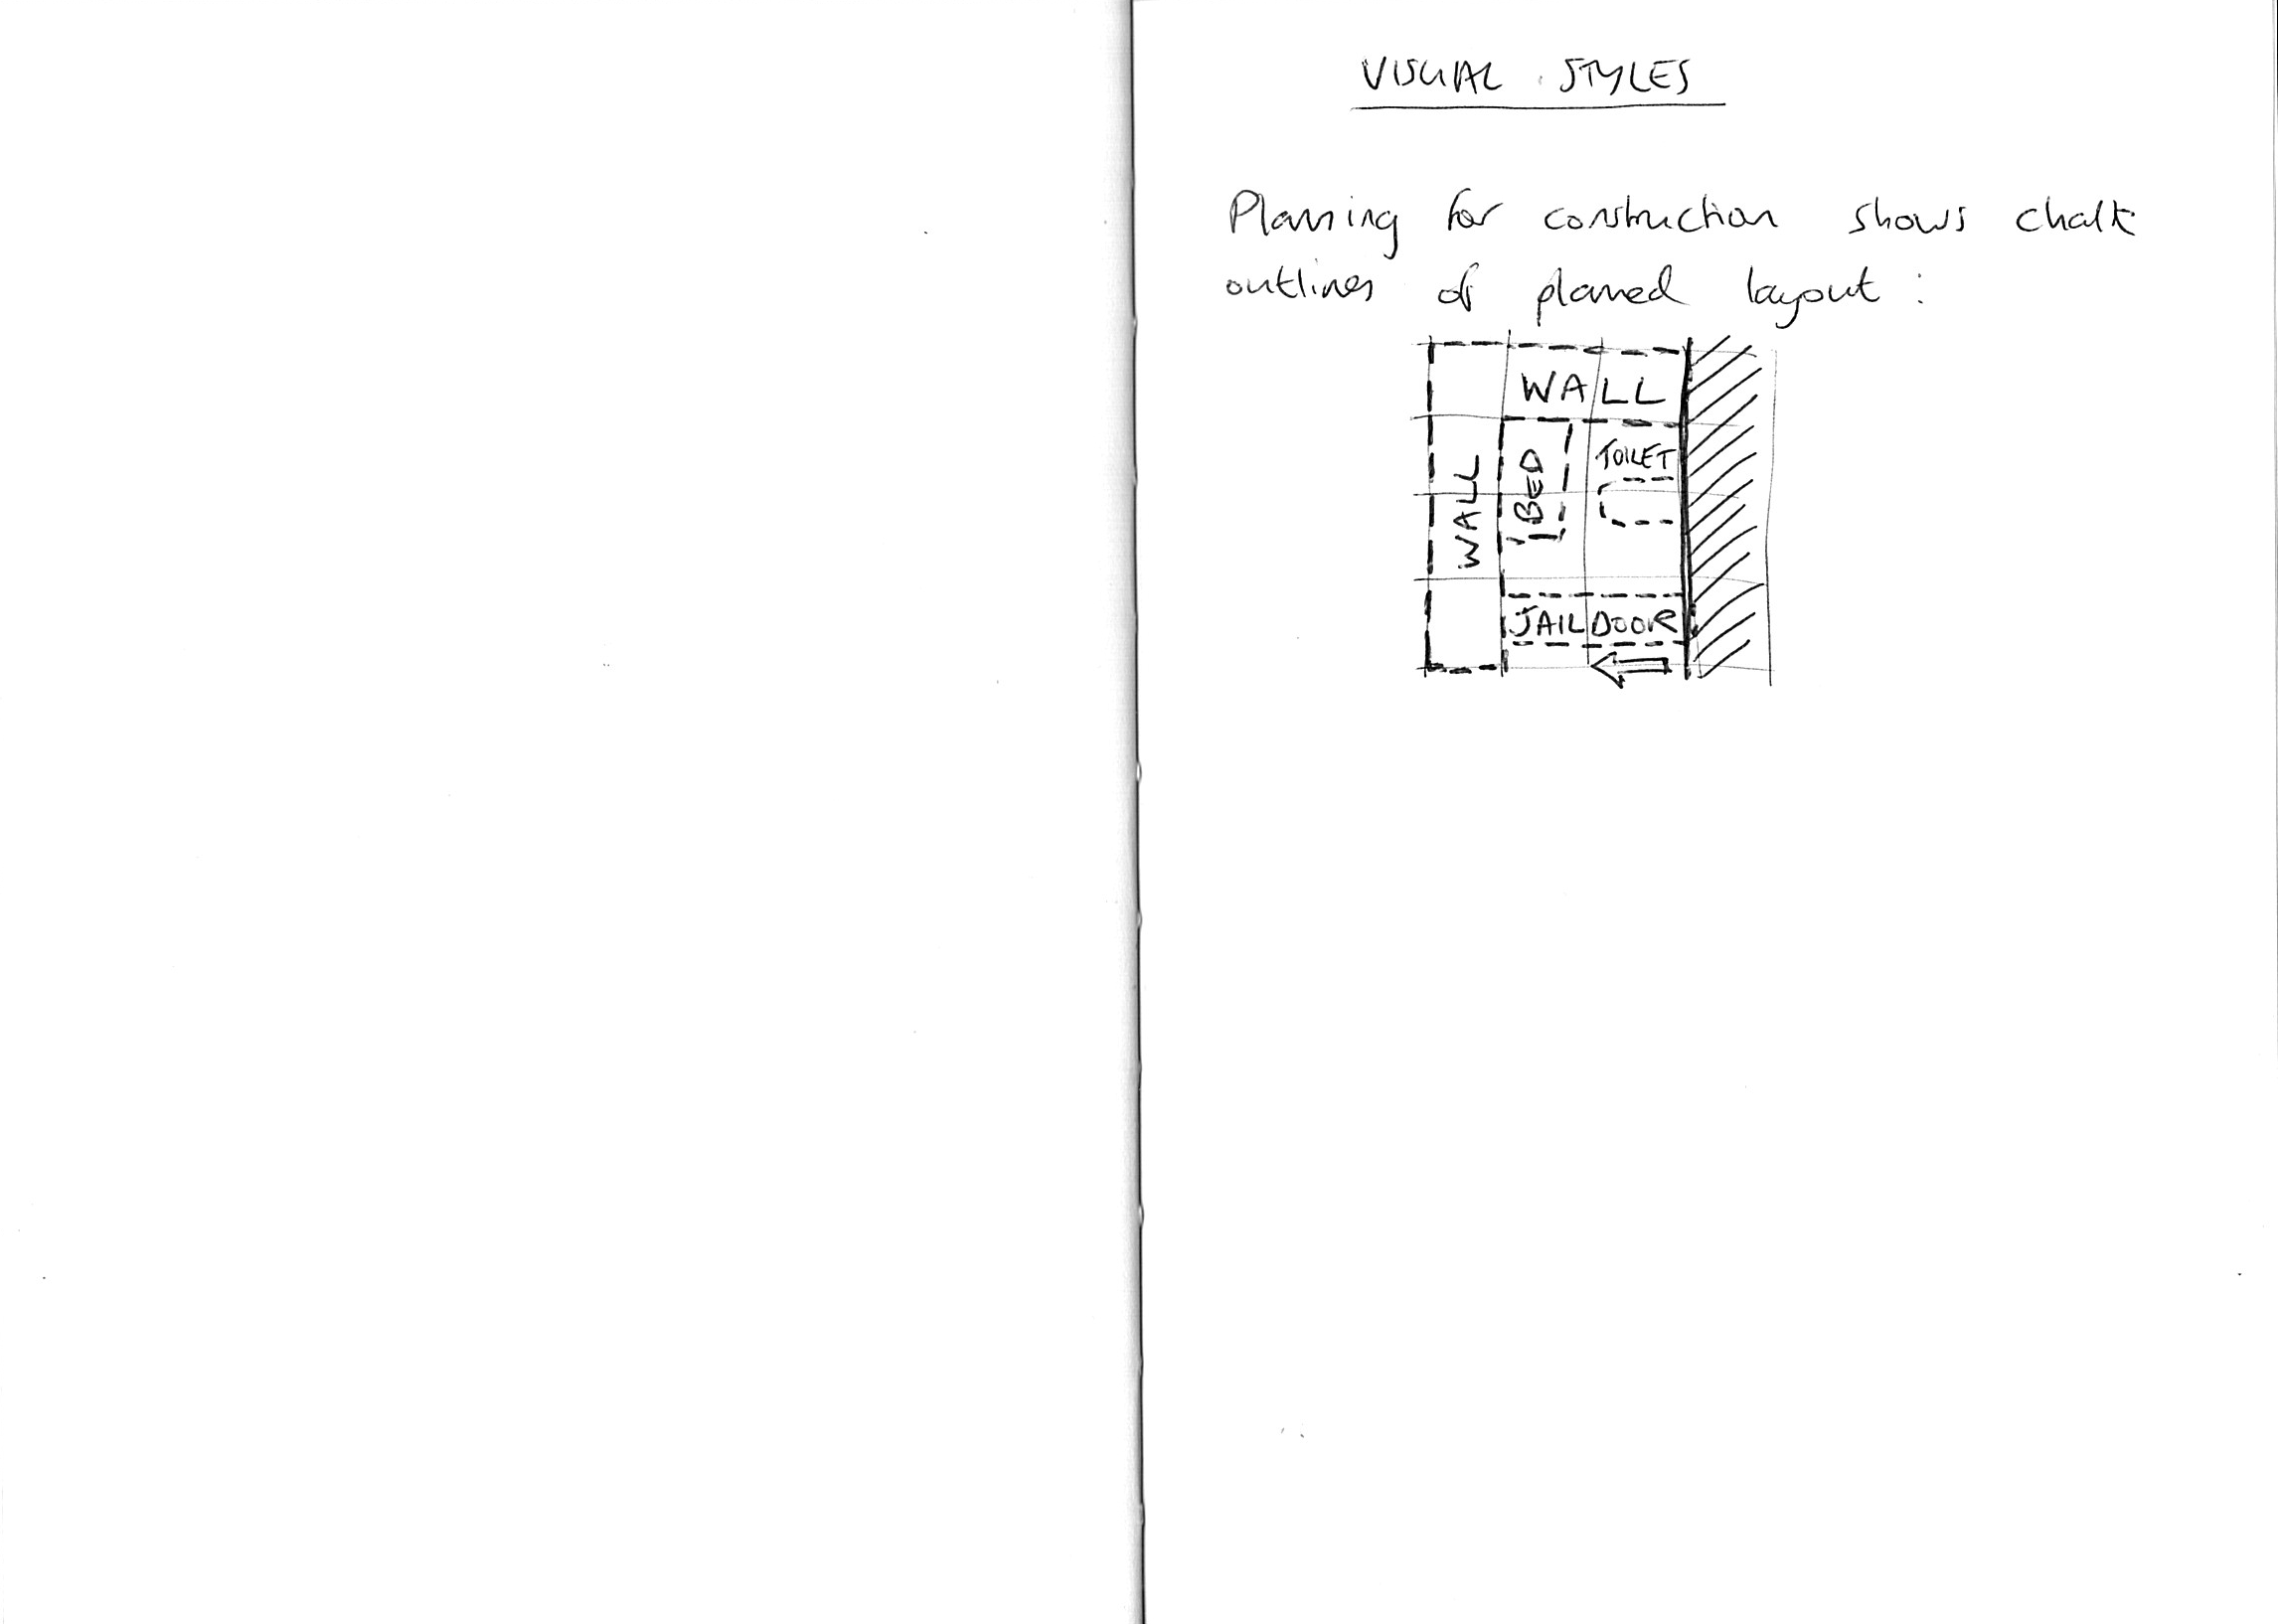 VISUAL STYLES
Planning for construction shows chalk
outlines of planned layout :
WALL
WALL
BED
TOILET
JAIL DOOR